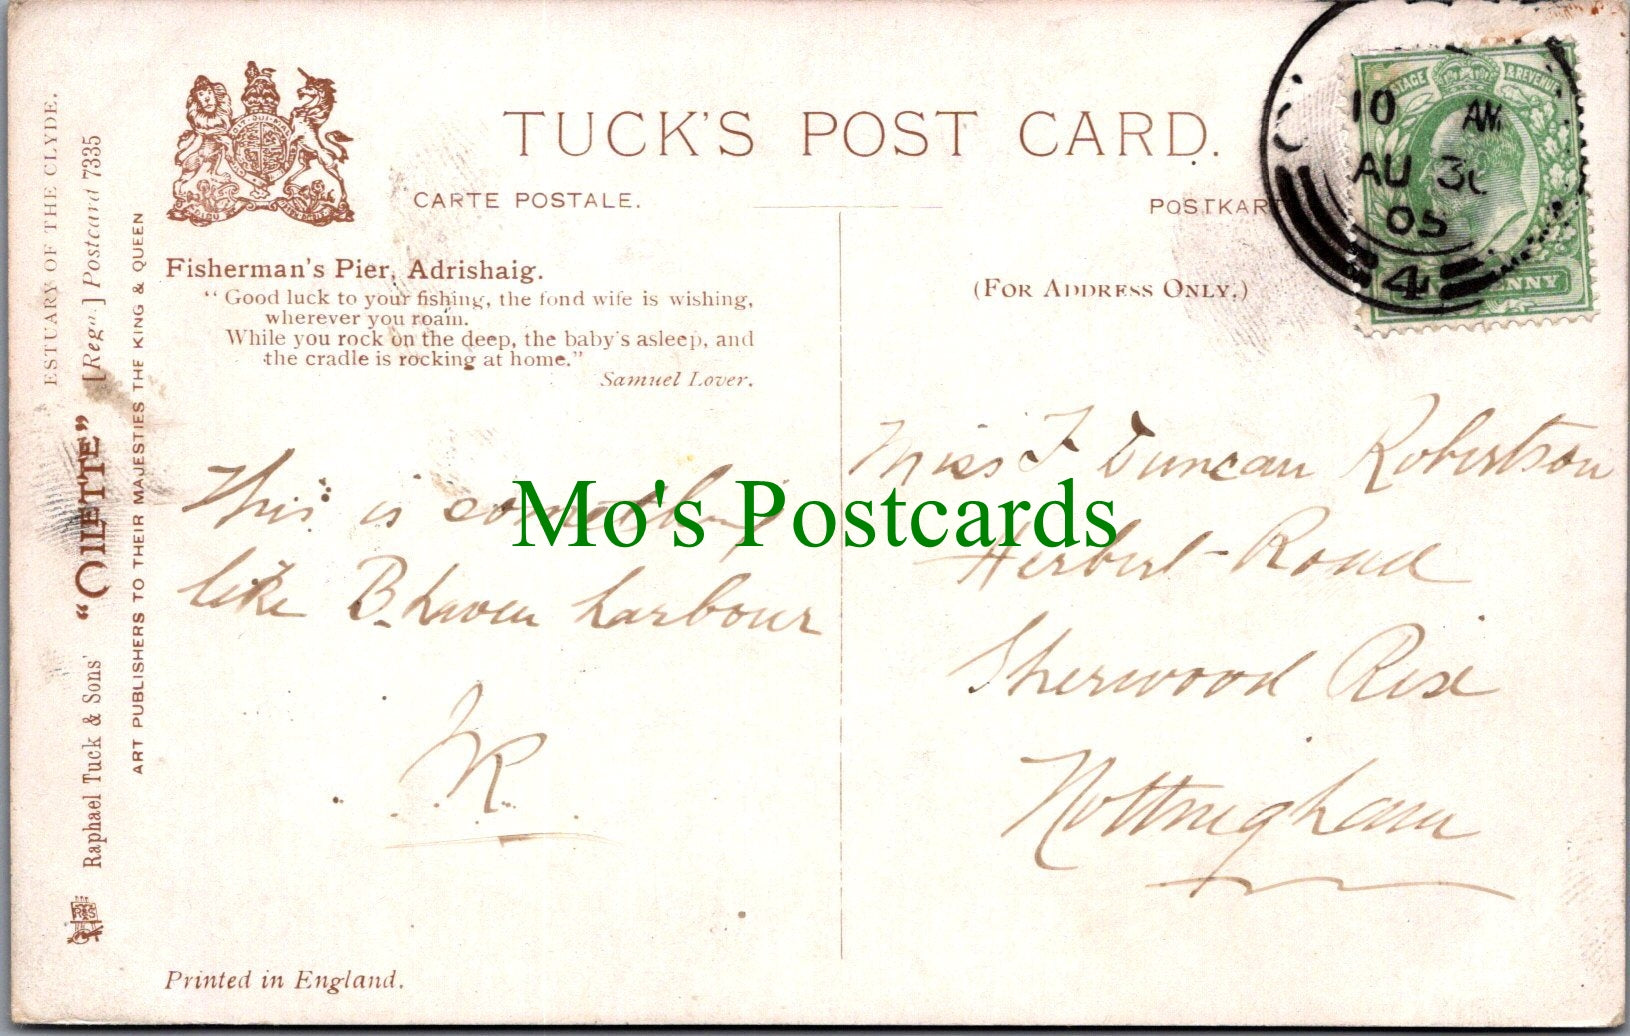 TUCK'S POST CARD.
CARTE POSTALE.
POSTKART
(FOR ADDRESS ONLY.)
Fisherman's Pier, Adrishaig.
"Good luck to your fishing, the fond wife is wishing,
wherever you roam.
While you rock on the deep, the baby's asleep, and
the cradle is rocking at home."
Samuel Lover.
ESTUARY OF THE CLYDE.
Raphael Tuck & Sons' "OILETTE" [Regd.] Postcard 7335
ART PUBLISHERS TO THEIR MAJESTIES THE KING & QUEEN
This is something
like B-haven harbour
JR
Mo's Postcards
Miss F Duncan Robertson
Herbert Road
Sherwood Rise
Nottingham
10 AM
AU 30
05
4
Printed in England.